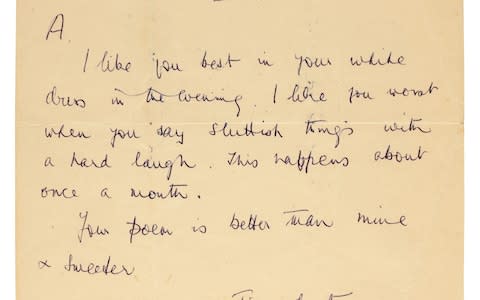 A.
I like you best in your white
dress in the evening. I like you worst
when you say sluttish things with
a hard laugh. This happens about
once a month.
Your poem is better than mine
& sweeter